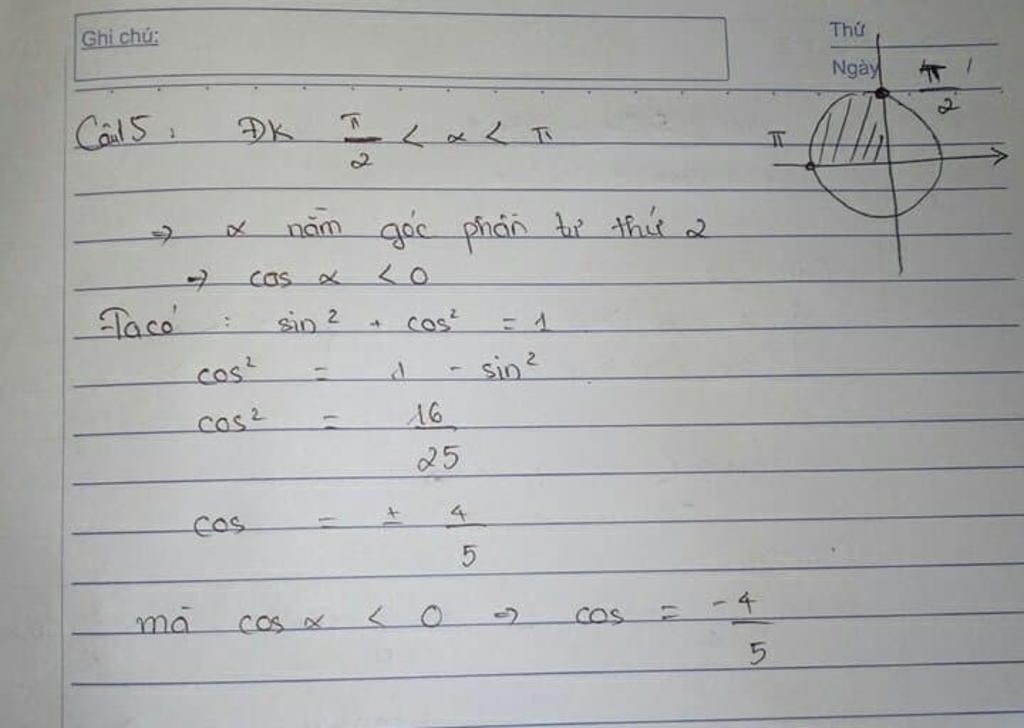 Ghi chú:
Thứ
Ngày
π/2
π
Câu 5: ĐK π/2 < α < π
⇒ α nằm góc phần tư thứ 2
⇒ cos α < 0
Ta có: sin² + cos² = 1
cos² = 1 - sin²
cos² = 16/25
cos = ± 4/5
mà cos α < 0 ⇒ cos = -4/5